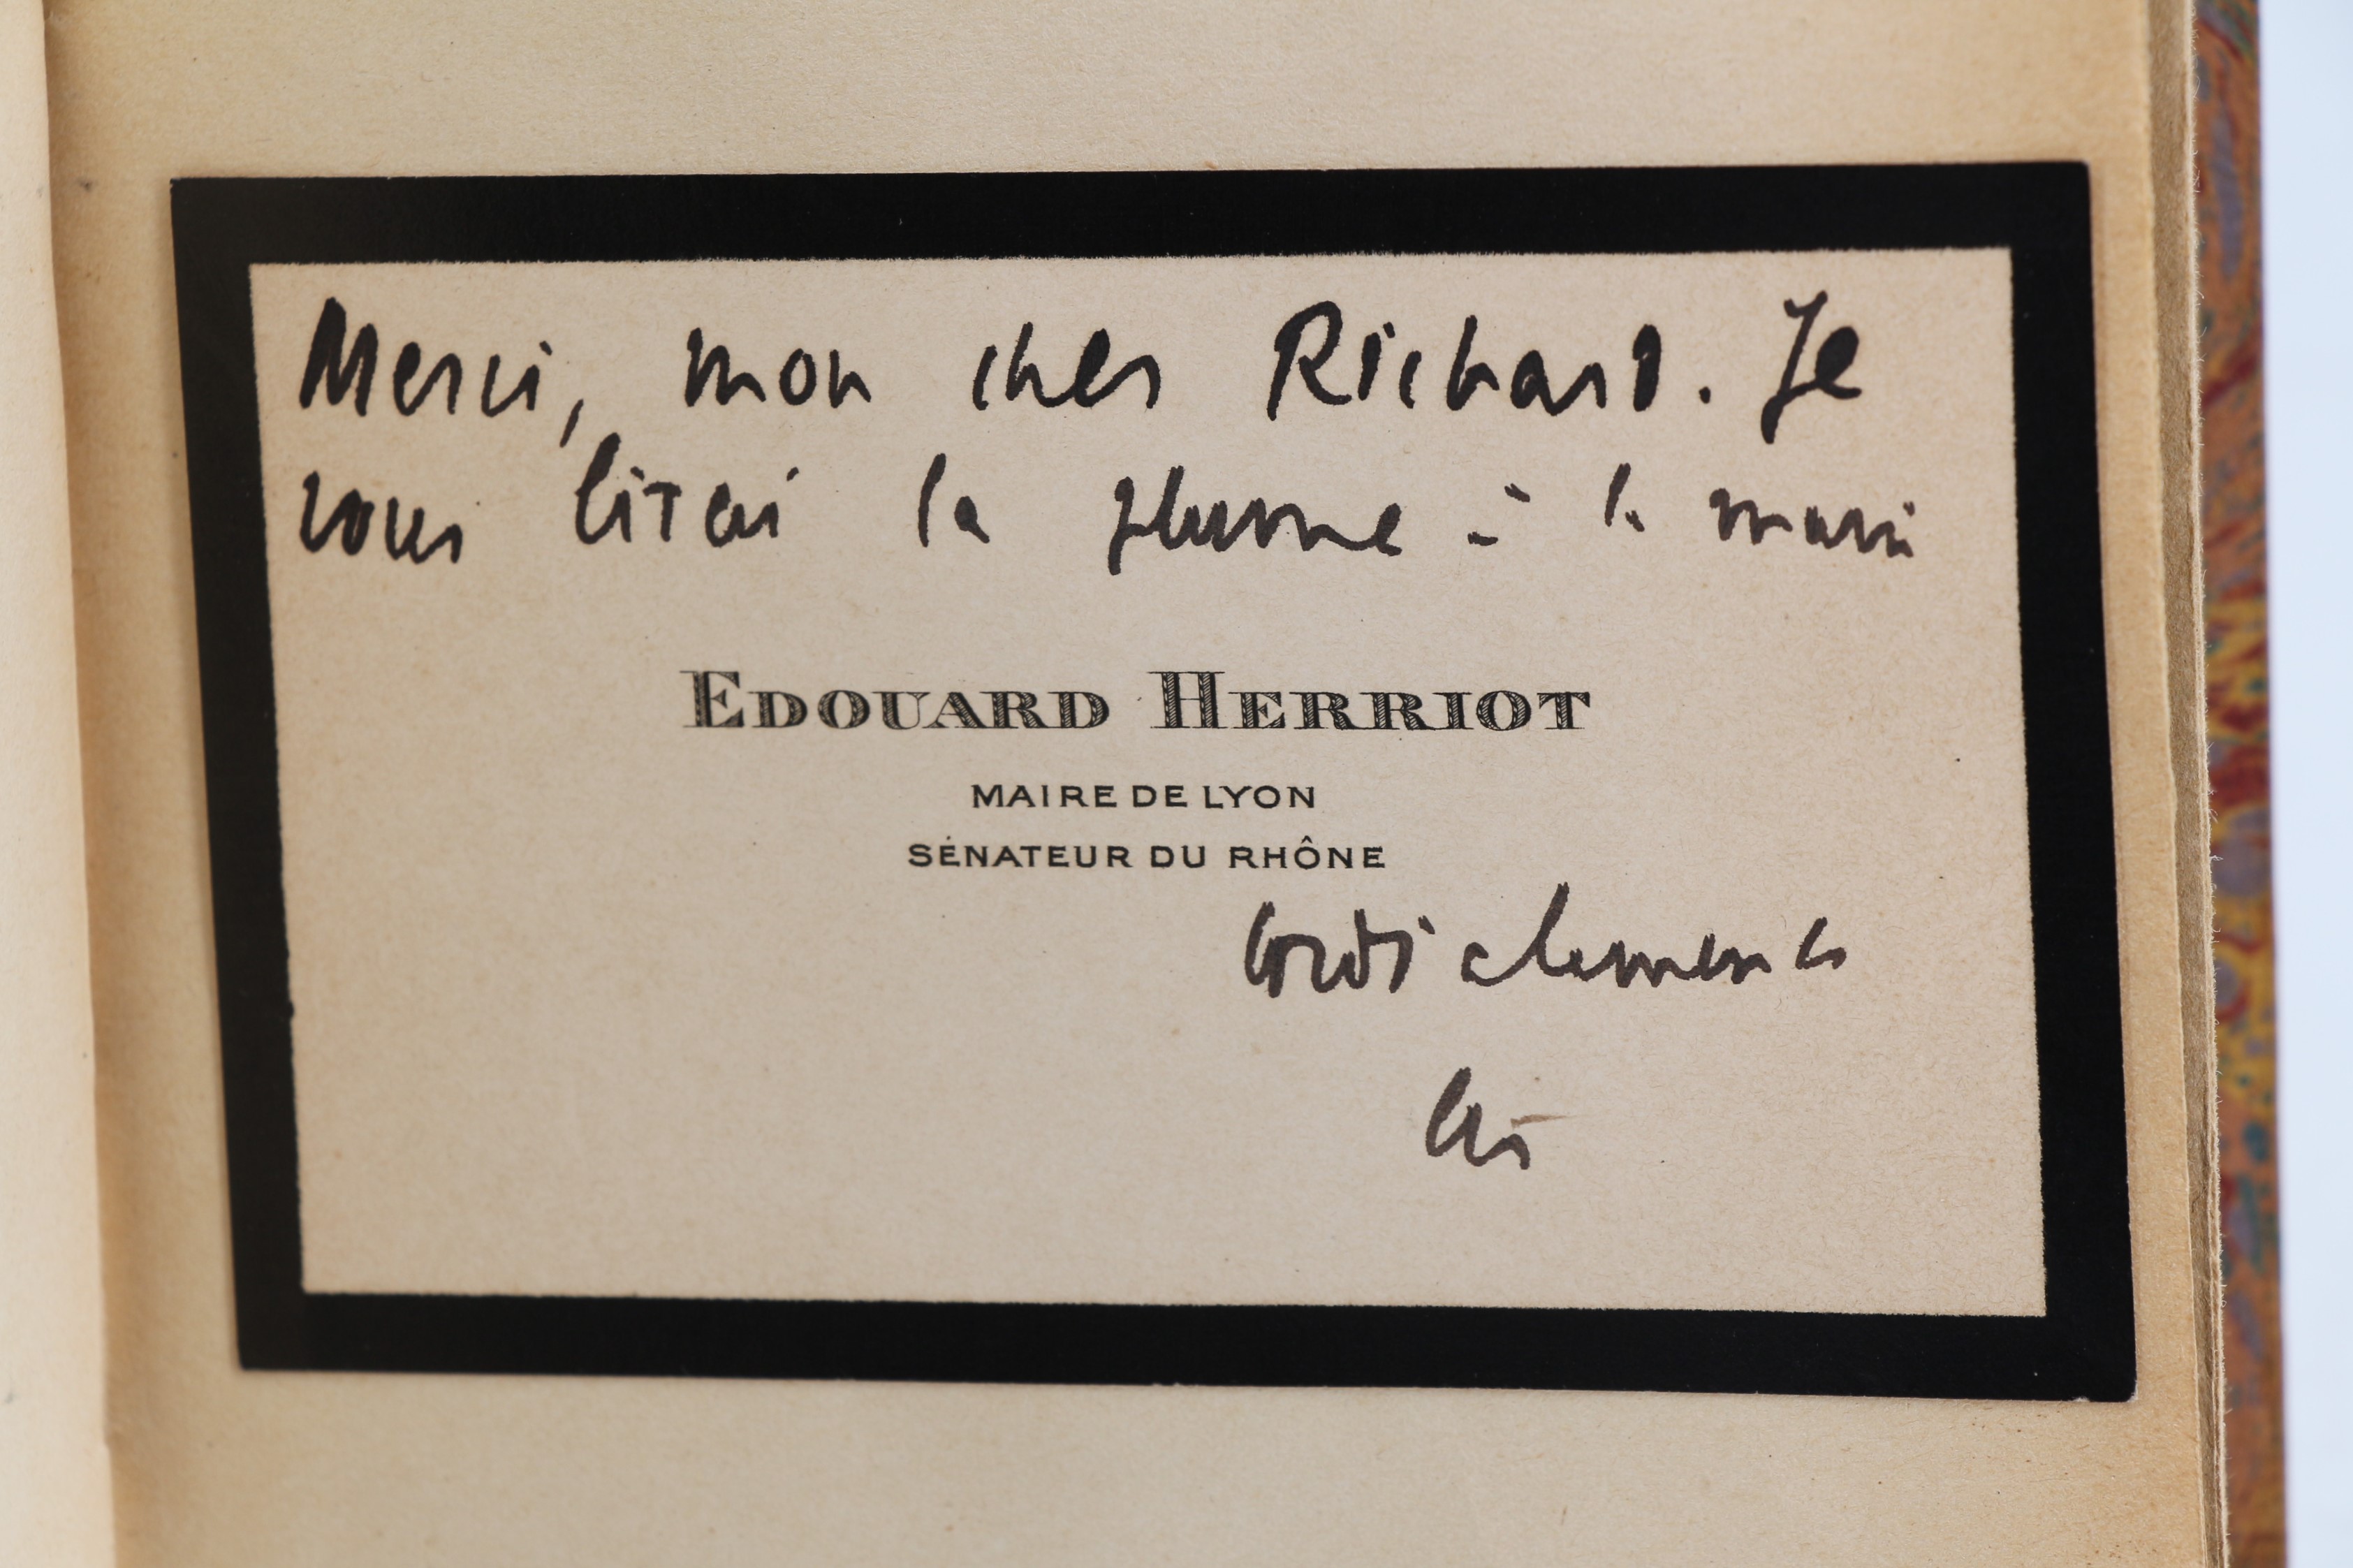 Merci, mon cher Richard. Je
vous lirai la plume à la main
EDOUARD HERRIOT
MAIRE DE LYON
SÉNATEUR DU RHÔNE
Cordialement